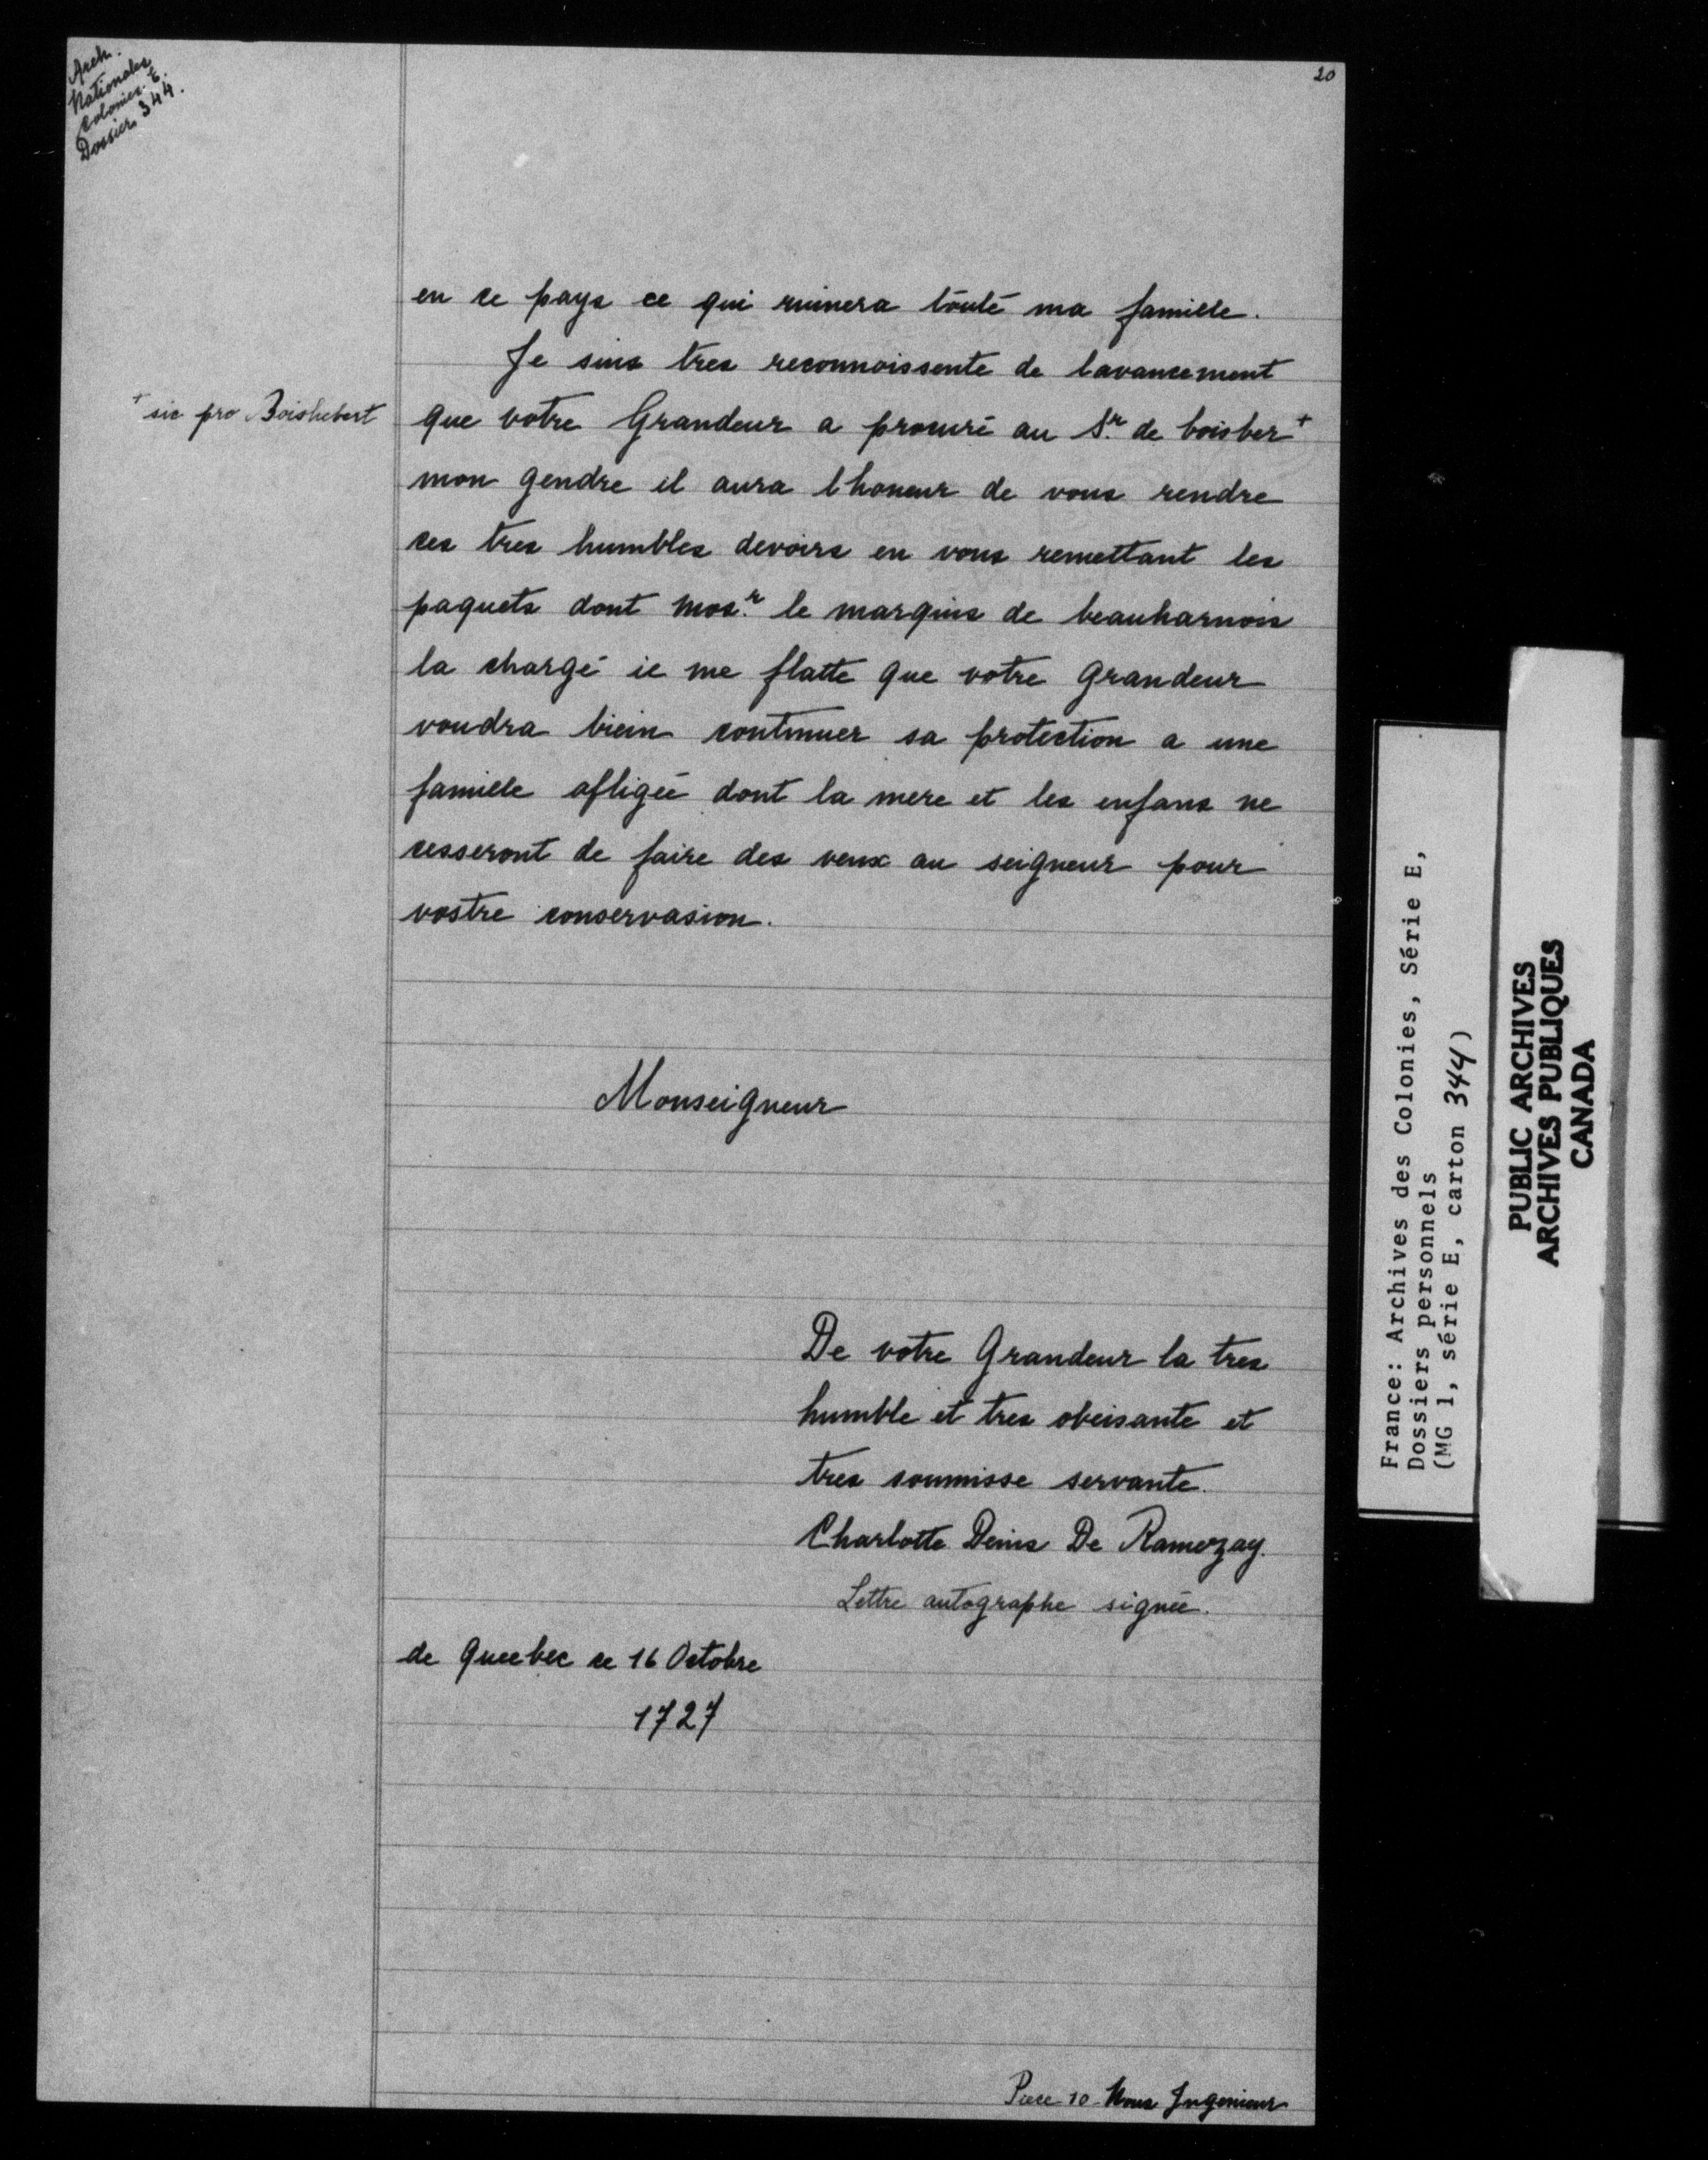 Arch.
Nationales
Colonies E.
Dossier 344.
20
en ce pays ce qui ruinera toute ma famille.
Je suis tres reconnoissente de lavancement
+ sic pro Boishebert
que votre Grandeur a procuré au Sr. de boisber+
mon gendre il aura lhoneur de vous rendre
ces tres humbles devoirs en vous remettant les
paquets dont mosr. le marquis de beauharnois
la chargé ie me flatte que votre grandeur
voudra biein continuer sa protection a une
famielle afligée dont la mere et les enfans ne
cesseront de faire des veux au seigneur pour
vostre conservasion.
Monseigneur
De votre Grandeur la tres
humble et tres obeisante et
tres soumisse servante.
Charlotte Denis De Ramezay.
Lettre autographe signée.
de queebec ce 16 Octobre
1727
Piece 10. Nous Ingenieur
France: Archives des Colonies, Série E,
Dossiers personnels
(MG 1, série E, carton 344)
PUBLIC ARCHIVES
ARCHIVES PUBLIQUES
CANADA